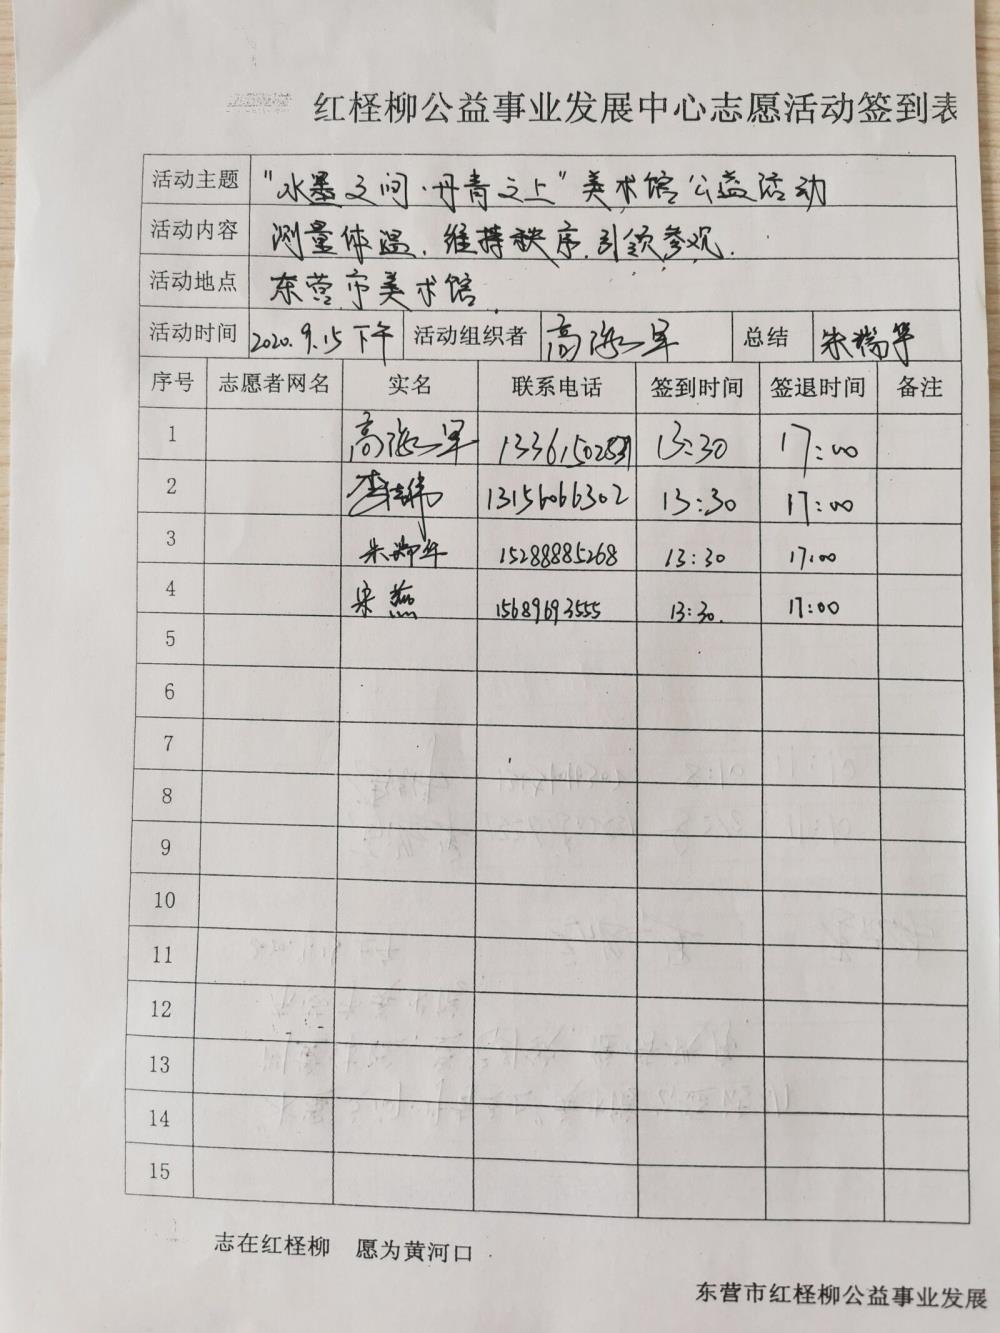 红柽柳公益事业发展中心志愿活动签到表
活动主题 "水墨之间·丹青之上"美术馆公益活动
活动内容 测量体温、维持秩序、引领参观.
活动地点 东营市美术馆
活动时间 2020.9.15下午 活动组织者 高海军 总结
序号 志愿者网名 实名 联系电话 签到时间 签退时间 备注
1 高海军 13:30 17:00
2 13156066302 13:30 17:00
3 15288885268 13:30 17:00
4 宋燕 15689693555 13:30. 17:00
5
6
7
8
9
10
11
12
13
14
15
志在红柽柳 愿为黄河口
东营市红柽柳公益事业发展